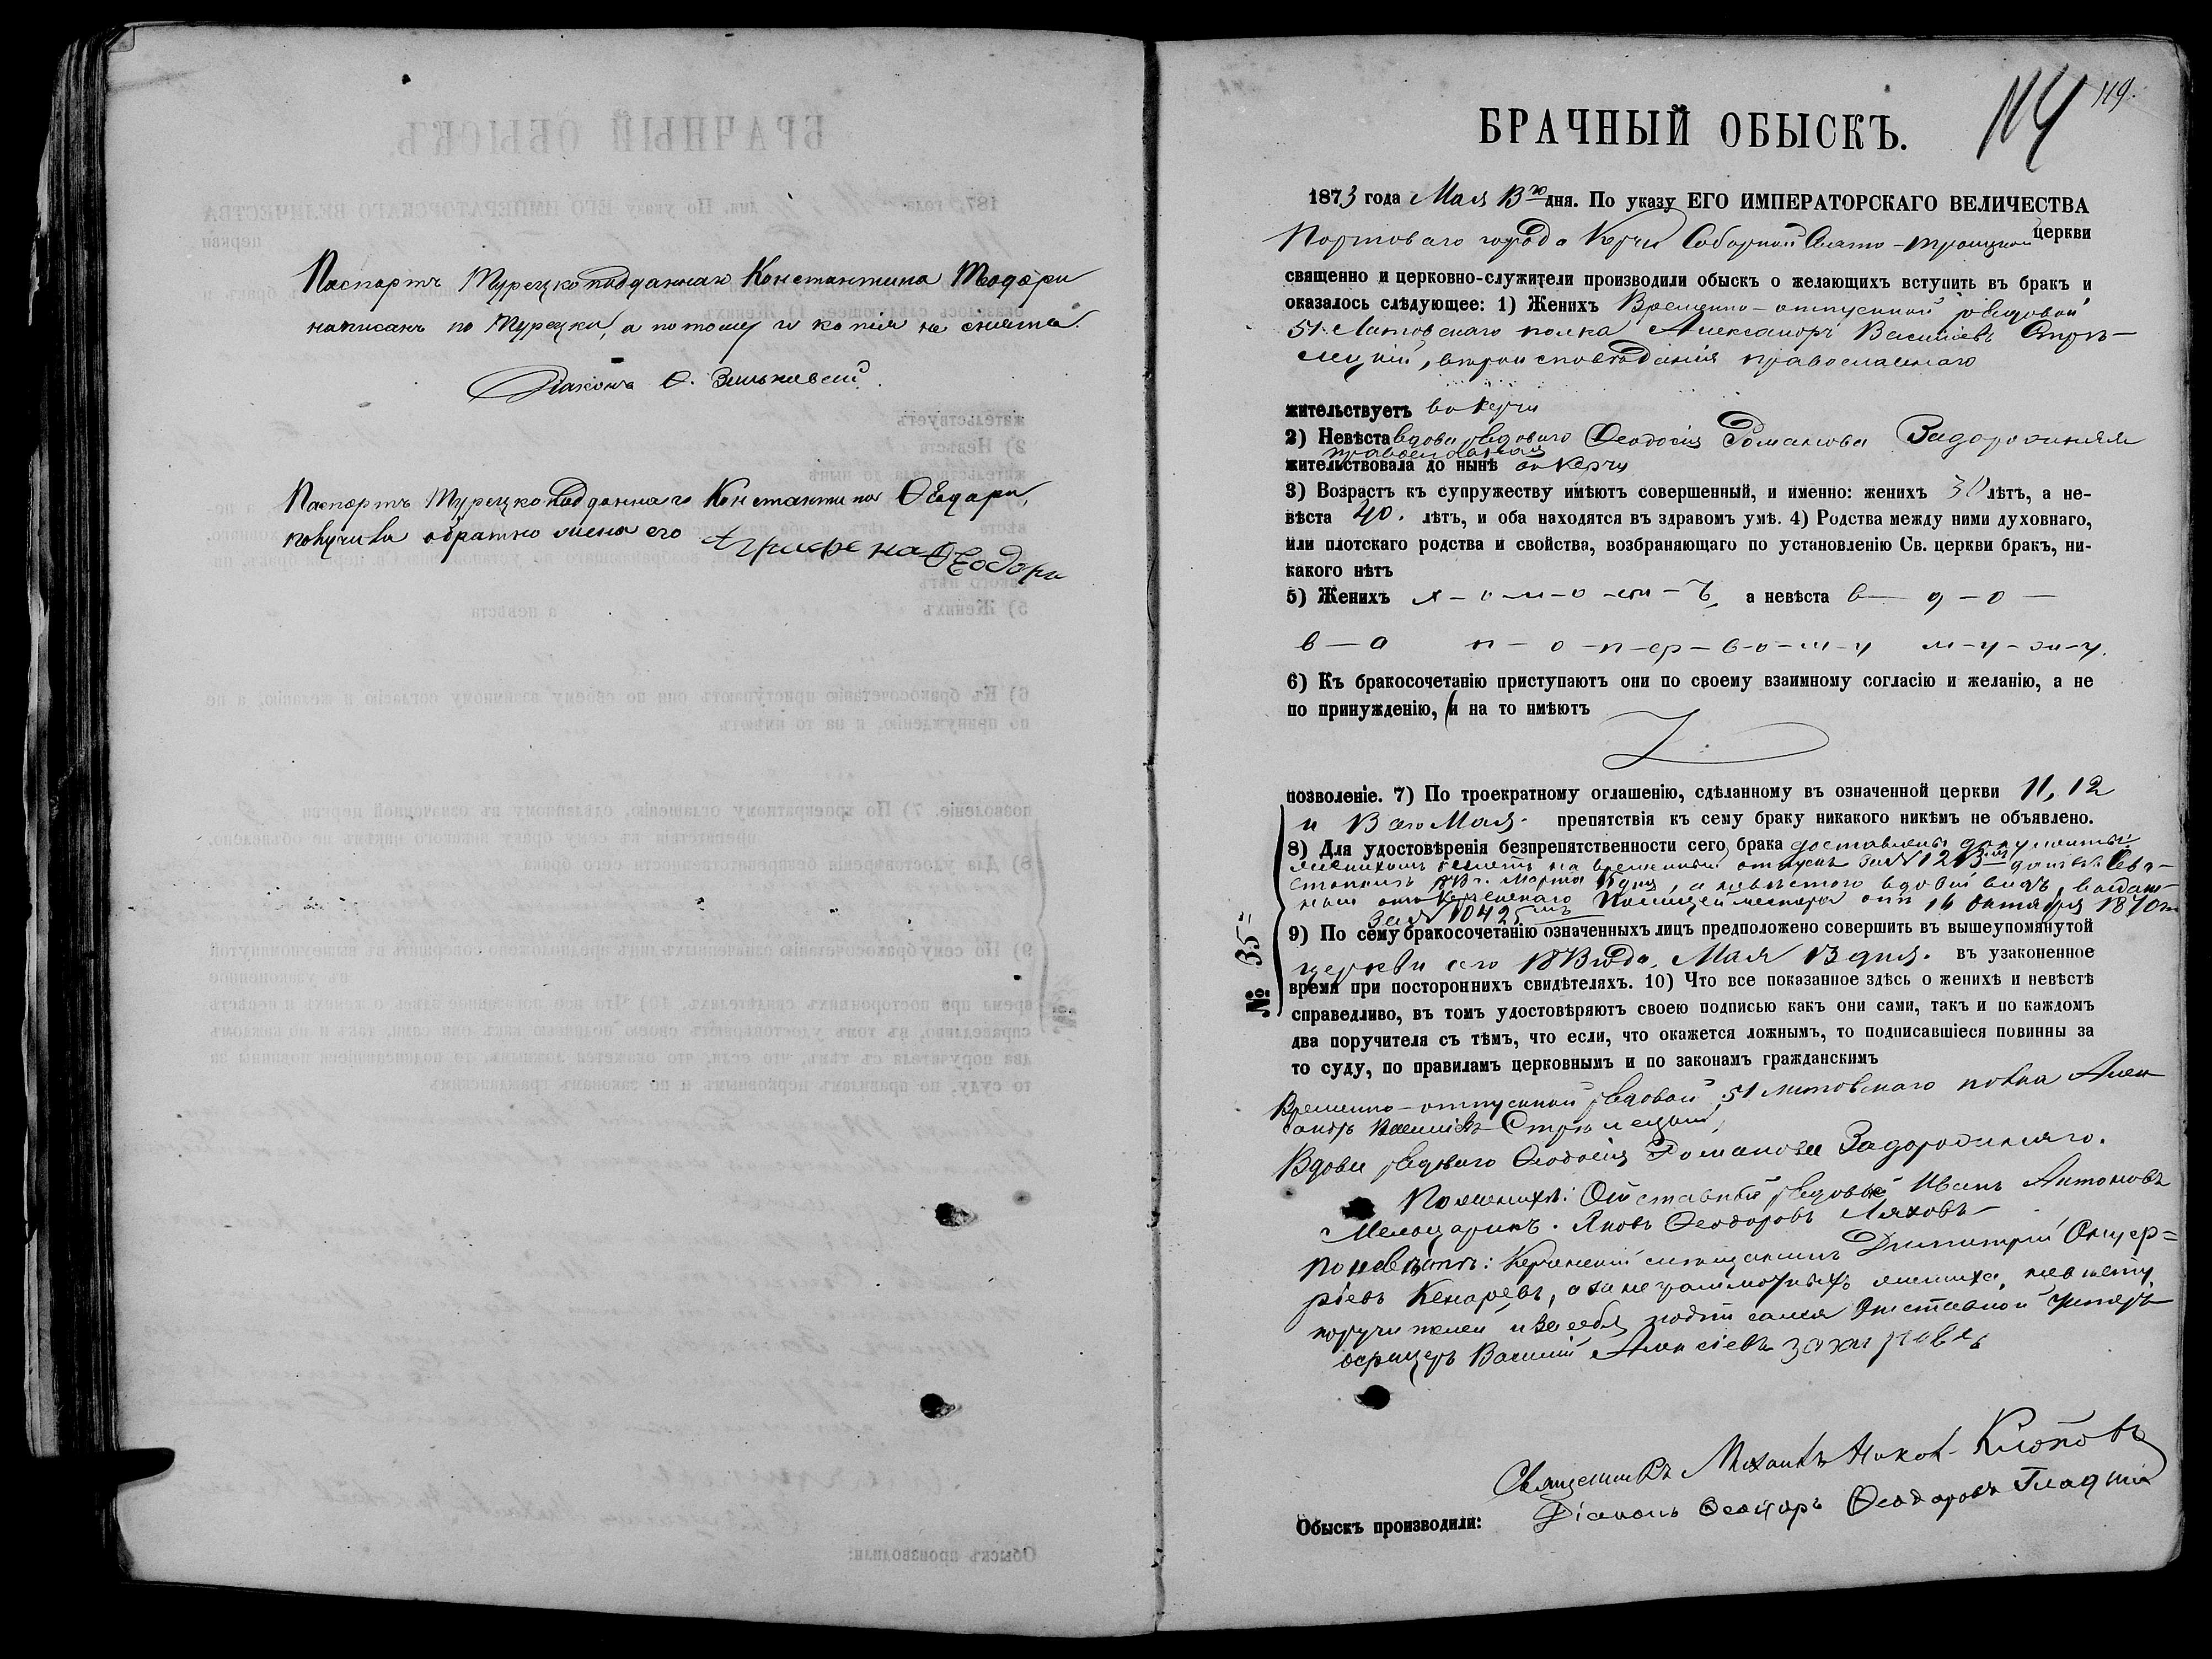 Паспортъ Турецко подданнаго Константина Теодори
написанъ по Турецки, а потому и копія не снята.
Діаконъ Ѳ.
Паспортъ Турецко подданнаго Константина Ѳеодори,
получила обратно жена его Агрифена Ѳеодори
114 119.
БРАЧНЫЙ ОБЫСКЪ.
1873 года Мая 13го дня. По указу ЕГО ИМПЕРАТОРСКАГО ВЕЛИЧЕСТВА
Портоваго города Керчи Соборной Свято-Троицкой церкви
священно и церковно-служители производили обыскъ о желающихъ вступить въ бракъ и
оказалось слѣдующее: 1) Женихъ Временно-отпускной рядовой
51 Литовскаго полка Александръ Васильевъ Стрѣ-
лецкій, вѣроисповѣданія православнаго
жительствуетъ въ Керчи
2) Невѣста вдова рядоваго Ѳеодосія Романова Задорожняя
православная
жительствовала до нынѣ въ Керчи
3) Возрастъ къ супружеству имѣютъ совершенный, и именно: женихъ 30 лѣтъ, а не-
вѣста 40. лѣтъ, и оба находятся въ здравомъ умѣ. 4) Родства между ними духовнаго,
или плотскаго родства и свойства, возбраняющаго по установленію Св. церкви бракъ, ни-
какого нѣтъ
5) Женихъ х-о-л-о-ст-ъ, а невѣста в— д-о—
в—а п-о-п-ер-в-о-м-у м-у-ж-у.
6) Къ бракосочетанію приступаютъ они по своему взаимному согласію и желанію, а не
по принужденію, и на то имѣютъ
позволеніе. 7) По троекратному оглашенію, сдѣланному въ означенной церкви 11, 12
и 13 сего Мая. препятствія къ сему браку никакого никѣмъ не объявлено.
8) Для удостовѣренія безпрепятственности сего брака доставлены документы:
женихомъ билетъ на временный отпускъ за № 1213
Марта дня, а невѣстою вдовій видъ, выдан-
ный отъ Керченскаго Полицеймейстера отъ 14 Октября 1870
за № 10425
№ 35
9) По сему бракосочетанію означенныхъ лицъ предположено совершить въ вышеупомянутой
церкви сего 1873 года, Мая 13 дня. въ узаконенное
время при постороннихъ свидѣтеляхъ. 10) Что все показанное здѣсь о женихѣ и невѣстѣ
справедливо, въ томъ удостовѣряютъ своею подписью какъ они сами, такъ и по каждомъ
два поручителя съ тѣмъ, что если, что окажется ложнымъ, то подписавшіеся повинны за
то суду, по правиламъ церковнымъ и по законамъ гражданскимъ
Временно-отпускной рядовой 51 Литовскаго полка Алек
сандръ Васильевъ Стрѣлецкій,
Вдова рядоваго Ѳеодосія Романова Задорожняго.
По женихѣ: Отставный рядовый Иванъ Антоновъ
Яковъ Ѳеодоровъ Ляховъ
По невѣстѣ: Керченскій мѣщанинъ Димитрій
Кенаревъ, а за неграмотныхъ жениха, невѣсту,
поручителей и за себя подписался Отставной Унтеръ
офицеръ Василій Алексіевъ Захаровъ
Священникъ Михаилъ Клоповъ
Обыскъ производили: Діаконъ Ѳеодоръ Ѳеодоровъ Гладкій